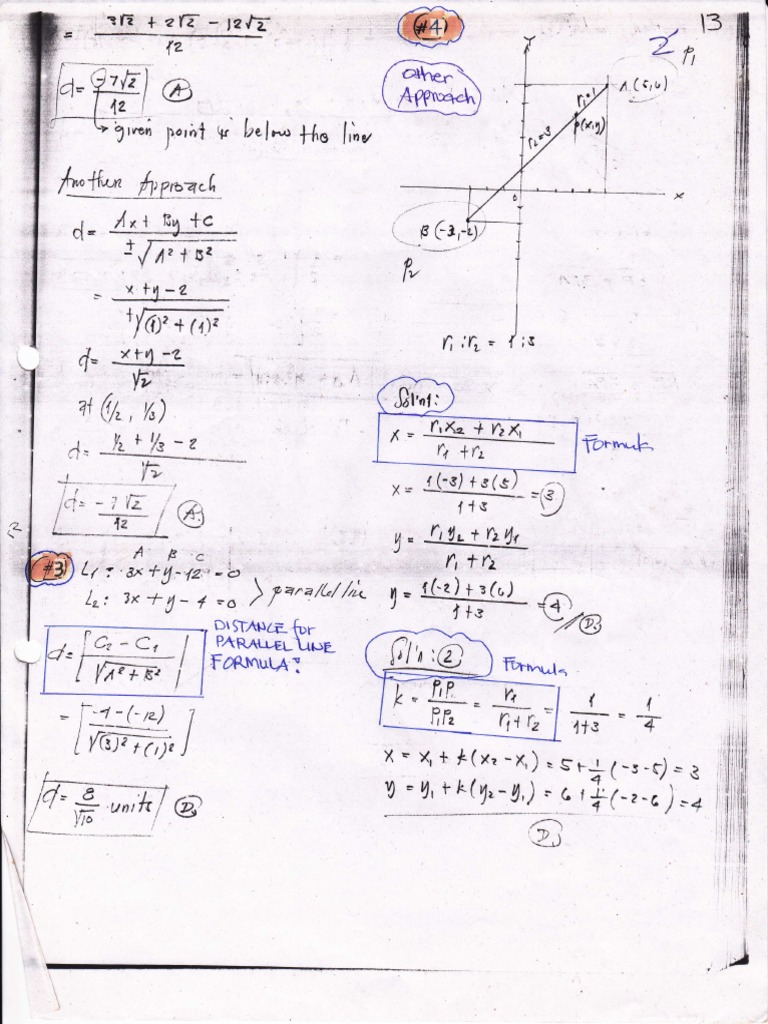 13
= 3√2 + 2√2 - 12√2 / 12
d = -7√2 / 12 (A)
given point is below the line
Another Approach
d = Ax + By + C / ±√A² + B²
= x + y - 2 / +√(1)² + (1)²
d = x + y - 2 / √2
at (1/2, 1/3)
d = 1/2 + 1/3 - 2 / √2
d = -7√2 / 12 (A.)
#3
A B C
L₁: 3x + y - 12 = 0
L₂: 3x + y - 4 = 0 > parallel line
d = [C₂ - C₁ / √A² + B²]
DISTANCE for
PARALLEL LINE
FORMULA:
= [-4 - (-12) / √(3)² + (1)²]
d = 8 / √10 units (D.)
#4
Other
Approach
Y
2
P₁
A (5,6)
r₁=1
P(x,y)
r₂=3
0
x
B (-3,-2)
P₂
r₁ : r₂ = 1 : 3
Sol'n1:
x = r₁x₂ + r₂x₁ / r₁ + r₂
Formula
x = 1(-3) + 3(5) / 1+3 = 3
y = r₁y₂ + r₂y₁ / r₁ + r₂
y = 1(-2) + 3(6) / 1+3 = 4 // D.
Sol'n: 2
Formula
k = P₁P / P₁P₂ = r₁ / r₁ + r₂ = 1 / 1+3 = 1 / 4
x = x₁ + k(x₂ - x₁) = 5 + 1/4 (-3-5) = 3
y = y₁ + k(y₂ - y₁) = 6 + 1/4 (-2-6) = 4
D.